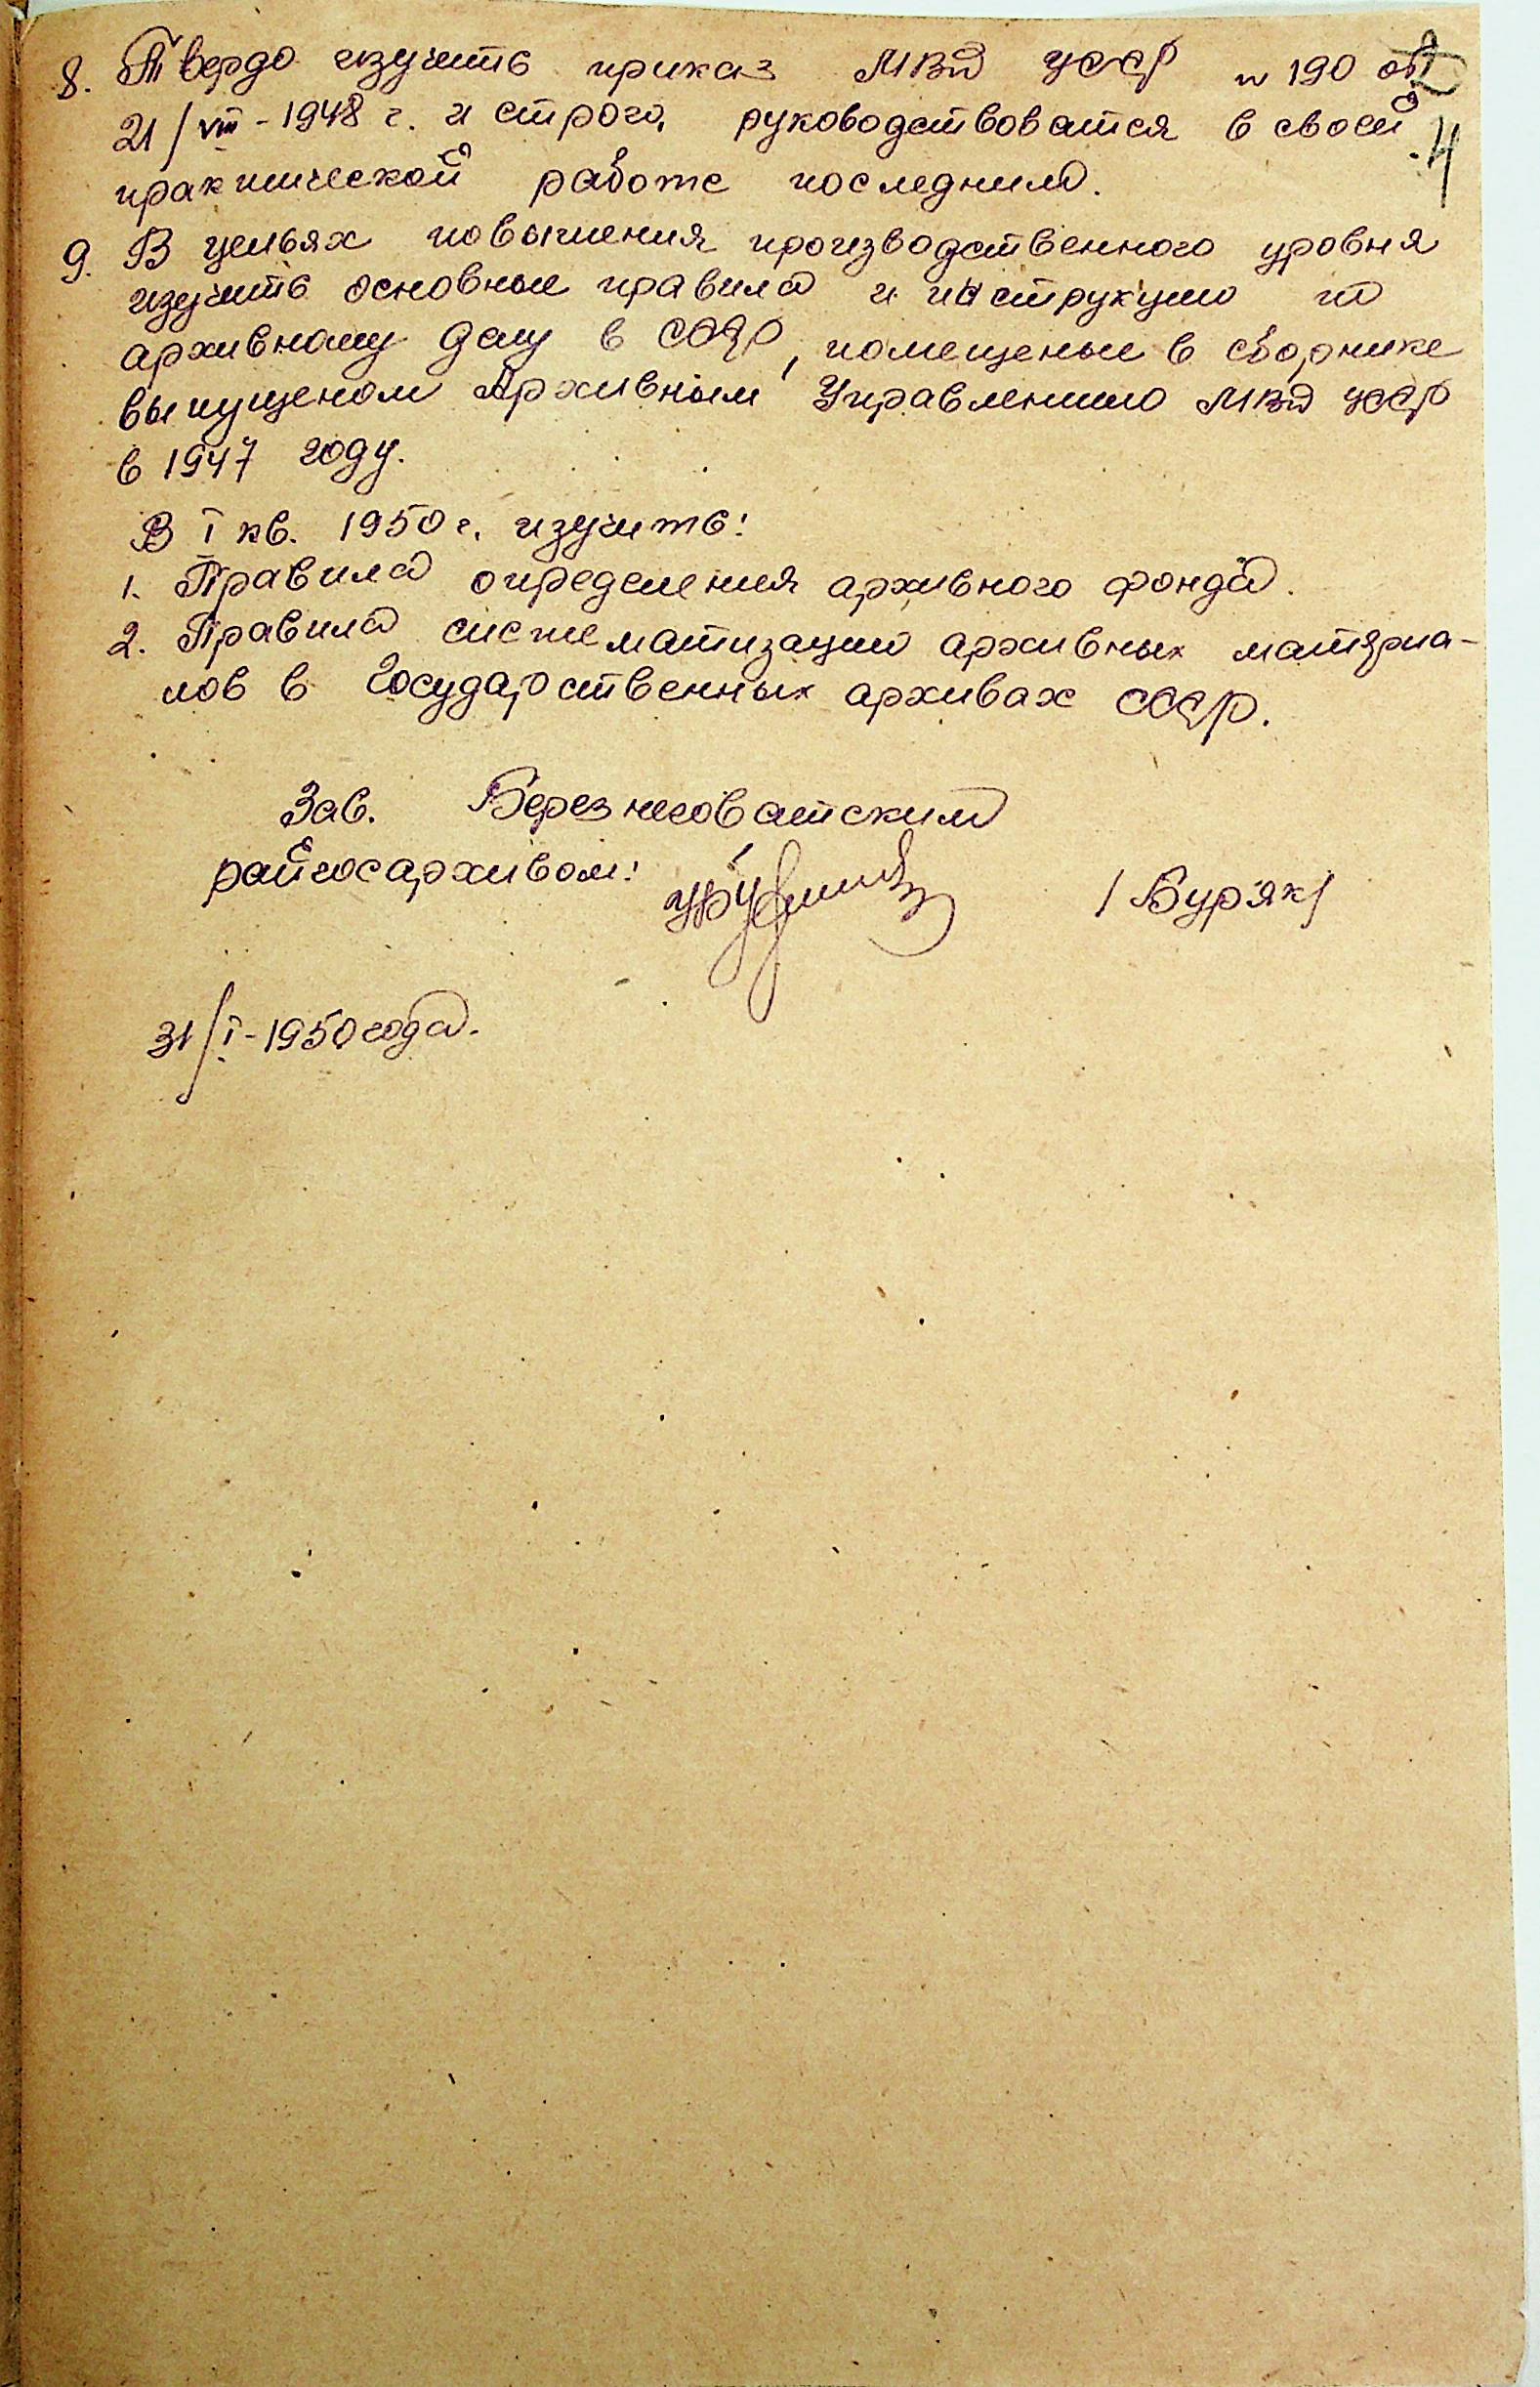 8. Твердо изучить приказ МВД УССР № 190 от
21/VIII-1948 г. и строго руководствоватся в своей
4
практической работе последним.
9. В цельях повышения производственного уровня
изучить основные правила и инструкции по
архивному делу в СССР, помещеные в сборнике
выпущеном Архивным Управлением МВД УССР
в 1947 году.
В I кв. 1950 г. изучить:
1. Правила определения архивного фонда.
2. Правила систематизации архивных матяриа-
лов в Государственных архивах СССР.
Зав. Березнеговатским
райгосархивом:
/Бур'як/
31/I-1950 года.